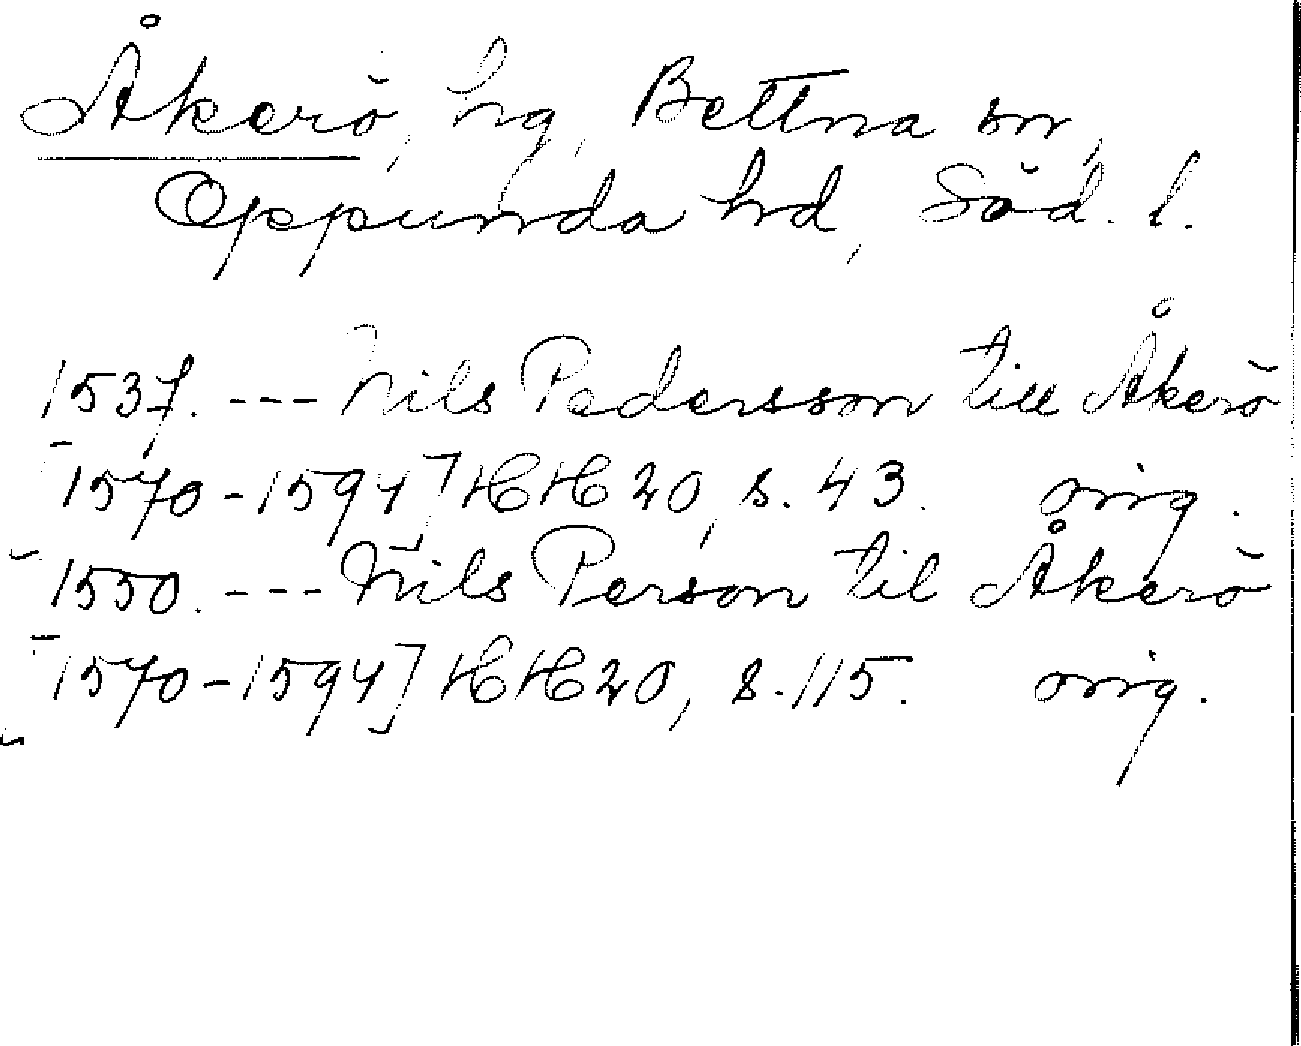 Åkerö, hg, Bettna sn,
Oppunda hd, Söd. l.
1537. --- Nils Pedersson till Åkerö
[1570-1594] HH 20, s. 43. orig.
1550. --- Nils Person til Åkerö
[1570-1594] HH 20, s. 115. orig.